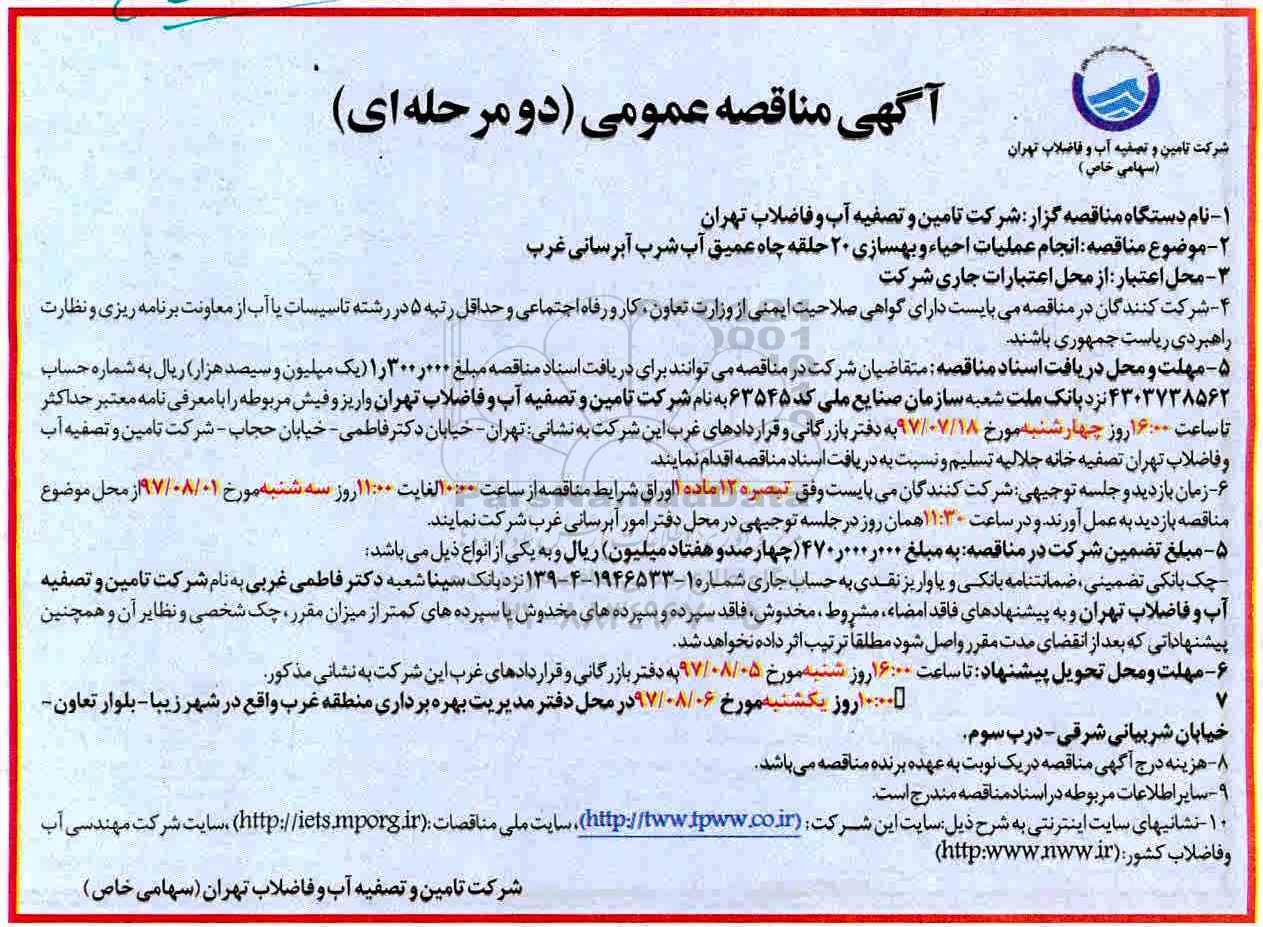 شرکت تامین و تصفیه آب و فاضلاب تهران
(سهامی خاص)
آگهی مناقصه عمومی (دو مرحله ای)
۱-نام دستگاه مناقصه گزار: شرکت تامین و تصفیه آب و فاضلاب تهران
۲-موضوع مناقصه: انجام عملیات احیاء و بهسازی ۲۰ حلقه چاه عمیق آب شرب آبرسانی غرب
۳-محل اعتبار: از محل اعتبارات جاری شرکت
۴-شرکت کنندگان در مناقصه می بایست دارای گواهی صلاحیت ایمنی از وزارت تعاون، کار و رفاه اجتماعی و حداقل رتبه ۵ در رشته تاسیسات یا آب از معاونت برنامه ریزی و نظارت
راهبردی ریاست جمهوری باشند.
۵-مهلت و محل دریافت اسناد مناقصه: متقاضیان شرکت در مناقصه می توانند برای دریافت اسناد مناقصه مبلغ ۱٫۳۰۰٫۰۰۰ (یک میلیون و سیصد هزار) ریال به شماره حساب
۴۳۰۳۷۳۸۵۶۲ نزد بانک ملت شعبه سازمان صنایع ملی کد ۶۳۵۴۵ به نام شرکت تامین و تصفیه آب و فاضلاب تهران واریز و فیش مربوطه را با معرفی نامه معتبر حداکثر
تا ساعت ۱۶:۰۰ روز چهارشنبه مورخ ۹۷/۰۷/۱۸ به دفتر بازرگانی و قراردادهای غرب این شرکت به نشانی: تهران - خیابان دکتر فاطمی - خیابان حجاب - شرکت تامین و تصفیه آب
و فاضلاب تهران تصفیه خانه جلالیه تسلیم و نسبت به دریافت اسناد مناقصه اقدام نمایند.
۶-زمان بازدید و جلسه توجیهی: شرکت کنندگان می بایست وفق تبصره ۱۲ ماده ۱ اوراق شرایط مناقصه از ساعت ۱۰:۰۰ لغایت ۱۱:۰۰ روز سه شنبه مورخ ۹۷/۰۸/۰۱ از محل موضوع
مناقصه بازدید به عمل آورند. و در ساعت ۱۱:۳۰ همان روز در جلسه توجیهی در محل دفتر امور آبرسانی غرب شرکت نمایند.
۵-مبلغ تضمین شرکت در مناقصه: به مبلغ ۴۷۰٫۰۰۰٫۰۰۰ (چهارصد و هفتاد میلیون) ریال و به یکی از انواع ذیل می باشد:
-چک بانکی تضمینی، ضمانتنامه بانکی و یا واریز نقدی به حساب جاری شماره ۱-۱۹۴۶۵۳۳-۴-۱۳۹ نزد بانک سینا شعبه دکتر فاطمی غربی به نام شرکت تامین و تصفیه
آب و فاضلاب تهران و به پیشنهادهای فاقد امضاء، مشروط، مخدوش، فاقد سپرده و سپرده های مخدوش یا سپرده های کمتر از میزان مقرر، چک شخصی و نظایر آن و همچنین
پیشنهاداتی که بعد از انقضای مدت مقرر واصل شود مطلقاً ترتیب اثر داده نخواهد شد.
۶-مهلت و محل تحویل پیشنهاد: تا ساعت ۱۶:۰۰ روز شنبه مورخ ۹۷/۰۸/۰۵ به دفتر بازرگانی و قراردادهای غرب این شرکت به نشانی مذکور.
۷ ۱۰:۰۰ روز یکشنبه مورخ ۹۷/۰۸/۰۶ در محل دفتر مدیریت بهره برداری منطقه غرب واقع در شهر زیبا - بلوار تعاون -
خیابان شربیانی شرقی - درب سوم.
۸-هزینه درج آگهی مناقصه در یک نوبت به عهده برنده مناقصه می باشد.
۹-سایر اطلاعات مربوطه در اسناد مناقصه مندرج است.
۱۰-نشانیهای سایت اینترنتی به شرح ذیل: سایت این شرکت: (http://tww.tpww.co.ir)، سایت ملی مناقصات: (http://iets.mporg.ir)، سایت شرکت مهندسی آب
و فاضلاب کشور: (http:www.nww.ir)
شرکت تامین و تصفیه آب و فاضلاب تهران (سهامی خاص)
ParsNamadData